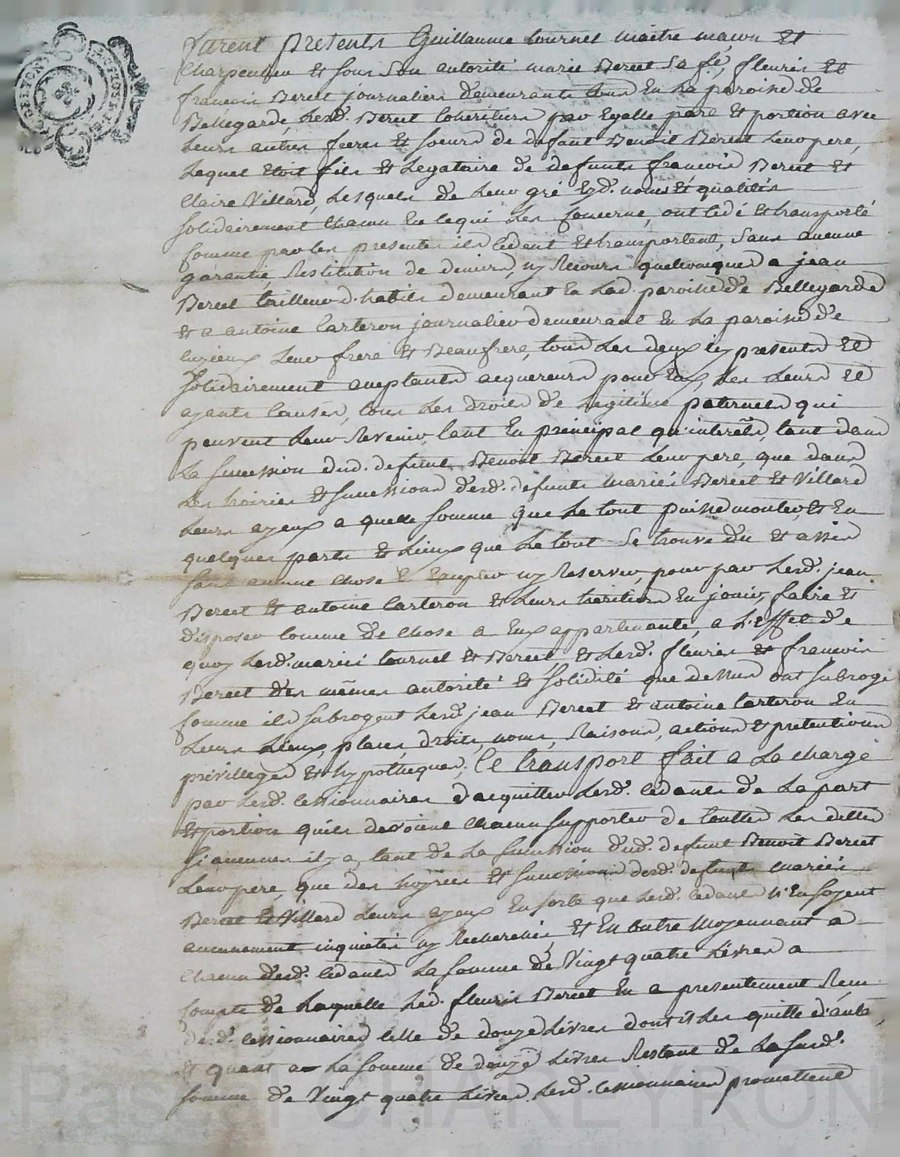 furent presents Guillaume tournel maitre macon Et
Charpentier Et sous son autorité marie Berect Sa fe, fleurie Et
francois Berect journalier demeurants tous En La paroisse de
Bellegarde, Lesd. Berect Coheritiers par Egalle part et portion avec
Leurs autres freres Et soeurs de defunt Benoit Berect Leur pere,
Lequel Etoit fils et Legataire de defunts francois Berect Et
Claire Villard, Lesquels de Leur gré Esd. noms Et qualités
solidairement Chacun En ce qui les Concerne, ont Cédé Et transporté
Comme par les presentes ils Cedent Et transportent, Sans aucune
garantie, Restitution de deniers, ny Recours quelconques a jean
Berect tailleur d'habits demeurant En Lad. paroisse de Bellegarde
Et a antoine Carteron journalier demeurant En La paroisse de
Leur frere Et Beaufrere, tous Les deux icy presents Et
Solidairement acceptants acquereurs pour Eux, Les Leurs Et
ayants Causes, tous Les droits de Legitime paternels qui
peuvent Leur Revenir, tant En principal qu'interêts, tant dans
La succession dud. defunt Benoit Berect Leur pere, que dans
Les hoiries Et successions desd. defunts mariés Berect Et Villard
Leurs ayeux a quelle somme que Le tout puisse monter, Et En
quelques parts Et Lieux que Le tout Se trouve du Et assis
sans aucune chose Excepter ny Reserver, pour par Lesd. jean
Berect Et antoine Carteron Et Leurs heritiers En jouir, faire Et
disposer Comme de chose a Eux appartenante, a L'Effet de
quoy Lesd. mariés tournel Et Berect Et Lesd. fleurie Et francois
Berect des mêmes autorité Et solidité que dessus ont subrogé
Comme ils subrogent Lesd. jean Berect Et antoine Carteron En
Leurs Lieux, places, droits, noms, Raisons, actions Et pretentions
privilleges Et hypotheques; Ce transport fait a La charge
par Lesd. Cessionnaires d'acquitter Lesd. Cedants de La part
Et portion qu'ils devoient Chacun supporter de touttes Les dettes
si aucunes il y a, tant de La succession dud. defunt Benoit Berect
Leur pere, que des hoiries Et successions desd. defunts mariés
Berect Et Villard Leurs ayeux En sorte que Lesd. Cedants n'En soyent
aucunement inquietés ny Recherchés, Et En outre Moyennant a
Chacun desd. Cedants La somme de Vingt quatre Livres a
Compte de Laquelle Led. fleurie Berect En a presentement Recu
desd. Cessionnaires Celle de douze Livres dont il Les quitte d'autant
Et quant a La somme de douze Livres Restant de La susd.
somme de Vingt quatre Livres Lesd. Cessionnaires promettent
Pascal CHAREYRON